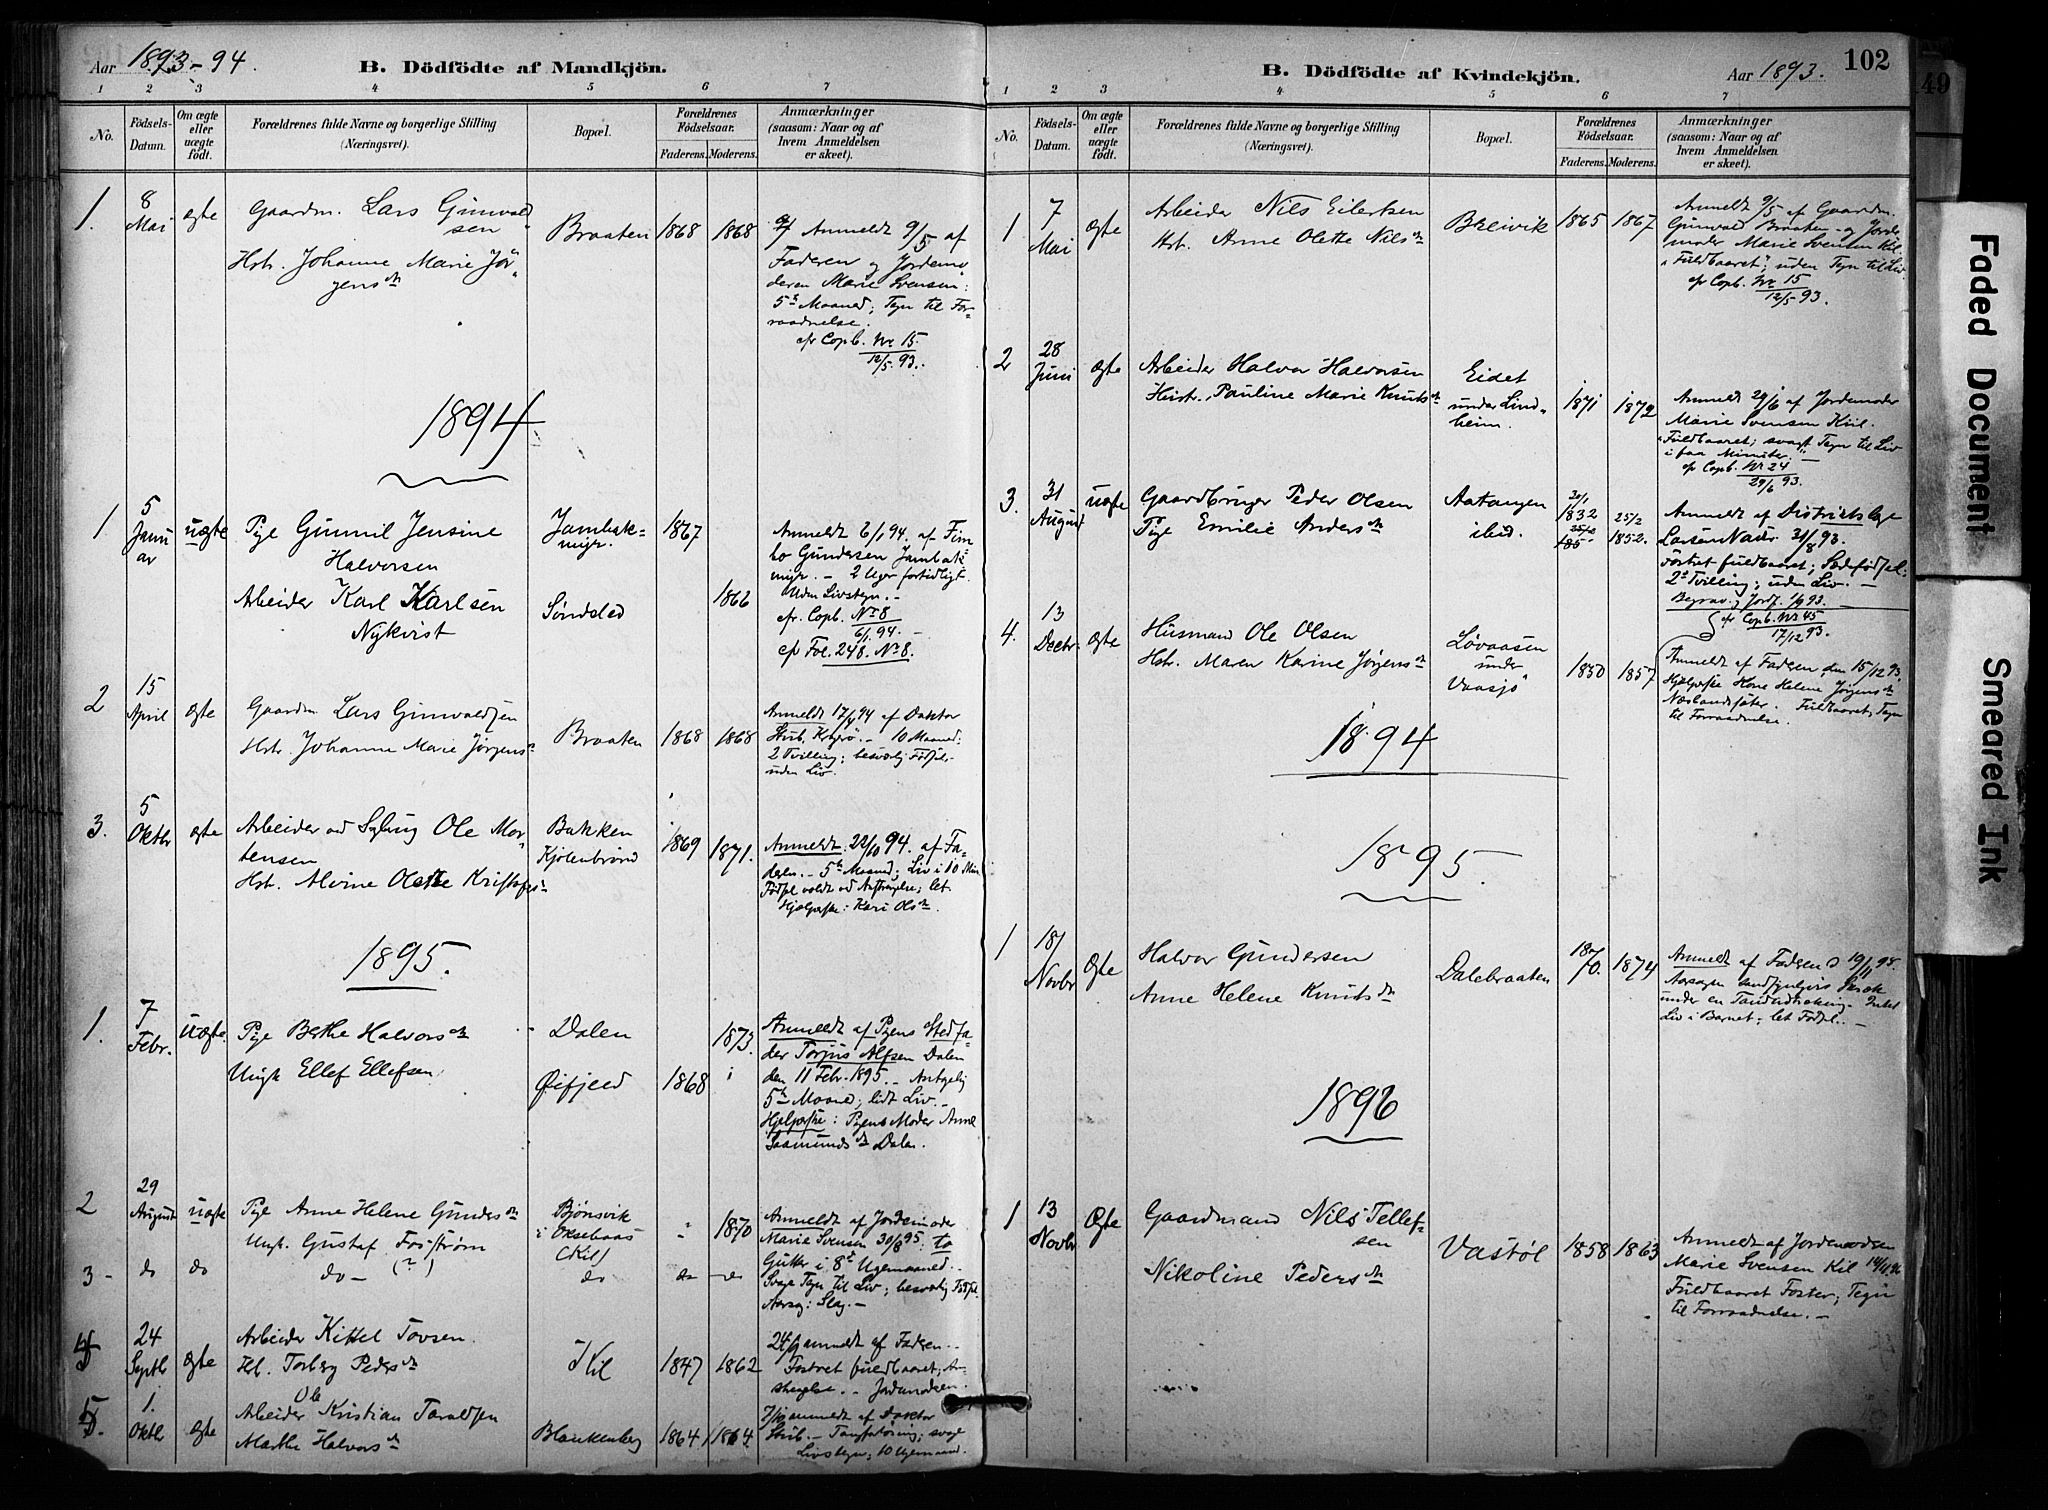 Aar 1893-94.
B. Dödfödte af Mandkjön.
1 2 3 4 5 6 7
No.
Födsels-
Datum.
Om ægte
eller
uægte
födt.
Forældrenes fulde Navne og borgerlige Stilling
(Næringsvei).
Bopæl.
Forældrenes
Födselsaar.
Faderens. Moderens.
Anmærkninger
(saasom: Naar og af
hvem Anmeldelsen
er skeet).
1. 8 Mai ægte
Gaardm. Lars Gunvald
sen
Hstr. Johanne Marie Jör-
gensdr
Braaten 1868 1868
Anmeldt 9/5 af
Faderen og Jordemo-
deren Marie Svensen:
5te Maaned; Tegn til For-
raadnelse.
cfr Copb. No 15
12/5 93.
1894
1 5 Januar uægte
Pige Gunnil Jensine
Halvorsen
Arbeider Karl Karlsen
Nykvist
Jambak-
myr.
Søndeled
1867
1862
Anmeldt 6/1 94. af
Gundersen Jambak
myr. - 2 Uger fortidligt.
Uden Livstegn. -
cfr. Copb. No 8
6/1 94. -
cfr Fol. 248. No 8.
2 15 April ægte
Gaardm Lars Gunvaldsen
Hstr. Johanne Marie Jørgensdr
Braaten 1868 1868
Anmeldt 17/4 94 af Doktor
Krgrø. - 10 Maaned:
2 Tvilling; besværlig Fødsel-
uden Liv.
3. 5 Oktbr ægte
Arbeider Ole Mor-
tensen
Hst. Alvine Olette
Bakken
Kjølebrønd
1869 1871.
Anmeldt 22/10 94. af Fa-
deren. - 5te Maaned; Liv i 10 Min
let
Hjælperske: Kari Olsdr.
1895.
1. 7 Febr. uægte.
Pige Berthe Halvorsdr
Ungk Ellef Ellefsen
Dalen
Øifjeld
1868
1873.
Anmeldt af Pigens Stedfa-
der Torjus Alfsen Dalen
den 11 Febr. 1895. - Antgelig
5te Maaned; lidt Liv. -
Hjelperske: Pigens Moder Anne
Saamundsdr Dalen.
2 29 August uægte
Pige Anne Helene Gundersdr
Ungk. Gustaf Fosstrøm
(?)
Bjønsvik
i Oksebaas
(Kil)
" 1870
Anmeldt af Jordemoder
Marie Svensen 30/8 95: to
Gutter i 8de Ugemaaned.
Svage Tegn til Liv; besværlig Fødsel.
Aarsag: Slag. -
3 - do do do - do do - do
4 24 Septbr ægte
Arbeider Kittel Tovsen.
Hst. Torberg Pedersdr
Kil 1847 1862
24/9 anmeldt af Faderen. -
Fostret fuldbaaret;
Jordemoderen.
5. 1. Oktbr ægte
Ole
Arbeider Kristian Taraldsen
Marthe Halvorsdr
Blankenberg 1864 1864
7/10 anmeldt af Doktor
Tangforløsning; svage
Livstegn; 10 Ugemaaned.
B. Dödfödte af Kvindekjön.
Aar 1893.
102
1 2 3 4 5 6 7
No.
Födsels-
Datum.
Om ægte
eller
uægte
födt.
Forældrenes fulde Navne og borgerlige Stilling
(Næringsvei).
Bopæl.
Forældrenes
Födselsaar.
Faderens. Moderens.
Anmærkninger
(saasom: Naar og af
hvem Anmeldelsen
er skeet).
1 7 Mai ægte
Arbeider Nils Eilertsen
Hst. Anne Olette Nilsdr
Breivik 1865 1867
Anmeldt 9/5 af Gaardm.
Gunvald Braaten og Jorde-
moder Marie Svensen Kil
"Fuldbaaret"; uden Tegn til Liv.
cfr Copb. No 15
12/5 93.
2 28 Juni ægte
Arbeider Halvor Halvorsen
Hustr. Pauline Marie Knutsdr
Eidet
under Lind-
heim.
1871 1872
Anmeldt 29/6 af Jordemoder
Marie Svensen Kil.
"Fuldbaaret; svagt Tegn til Liv
i faa Minuter." -
cfr Copb. No 24
29/6 93.
3. 31 August uægte
Gaardbruger Peder Olsen
Pige Emilie Andersdr
Aatangen
ibid.
1832
25/2
1852.
Anmeldt af Districtslæge
Larsen 31/8 93.
fuldbaaret; Sædefødsel:
2de Tvilling; uden Liv. -
Begrav. Jordf. 1/9 93. -
cfr Copb. No 45
17/12 93.
4. 13 Decbr. ægte
Husmand Ole Olsen
Hst. Maren Karine Jørgensdr
Løvaasen
under
Vaasjø
1850 1857
Anmeldt af Faderen den 15/12 93.
Hjælperske Kone Helene Jørgensdr
Fuldbaaret; Tegn
til Forraadnelse.
1894
1895.
1 18/ Novbr ægte
Halvor Gundersen
Anne Helene Knutsdr
Dalebraaten 1870. 1874
Anmeldt af Faderen d 19/11 95.
Aarsagen sandsynligvis Skræk
under en Tandudtrækning. Intet
Liv i Barnet; let Fødsel. -
1896
1 13 Novbr Ægte
Gaardmand Nils Tellef-
sen
Nikoline Pedersdr
Vastøl 1858 1863
Anmeldt af Jordemoderen
Marie Svensen Kil 14/11 96
Fuldbaaret Foster; Tegn
til Forraadnelse. -
49
Faded Document
Smeared Ink